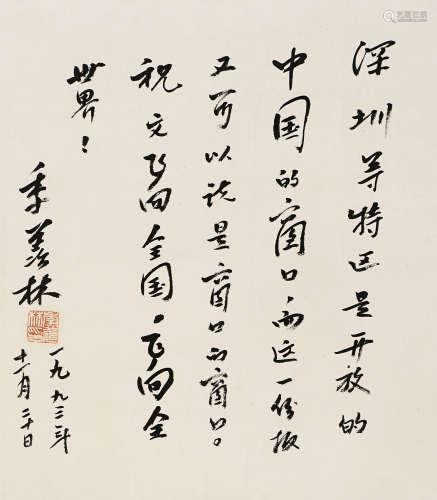 深圳等特区是开放的
中国的窗口，而这一份报
又可以说是窗口的窗口。
祝它飞向全国，飞向全
世界！
季羡林
一九九三年
十一月二十日